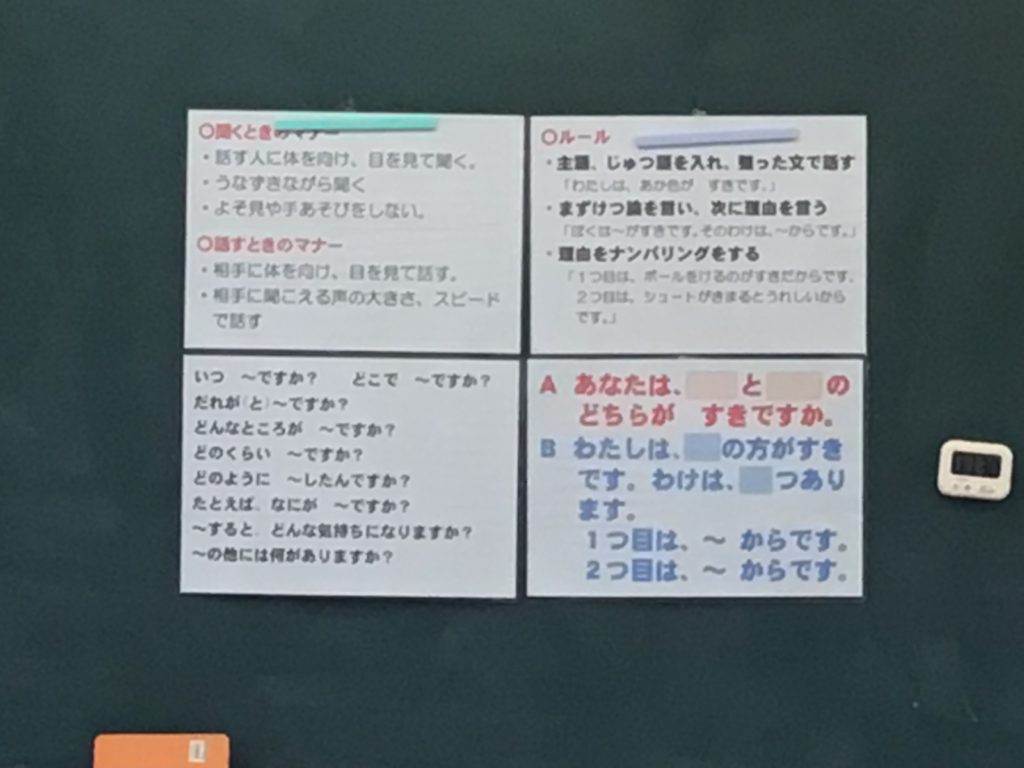 〇聞くときのマナー
・話す人に体を向け、目を見て聞く。
・うなずきながら聞く
・よそ見や手あそびをしない。
〇話すときのマナー
・相手に体を向け、目を見て話す。
・相手に聞こえる声の大きさ、スピード
で話す
〇ルール
・主語、じゅつ語を入れ、整った文で話す
「わたしは、あか色が　すきです。」
・まずけつ論を言い、次に理由を言う
「ぼくは～がすきです。そのわけは、～からです。」
・理由をナンバリングをする
「１つ目は、ボールをけるのがすきだからです。
２つ目は、シュートがきまるとうれしいから
です。」
いつ　～ですか？　　どこで　～ですか？
だれが（と）～ですか？
どんなところが　～ですか？
どのくらい　～ですか？
どのように　～したんですか？
たとえば、なにが　～ですか？
～すると、どんな気持ちになりますか？
～の他には何がありますか？
A　あなたは、　と　の
どちらが　すきですか。
B　わたしは、　の方がすき
です。わけは、　つあり
ます。
１つ目は、～ からです。
２つ目は、～ からです。